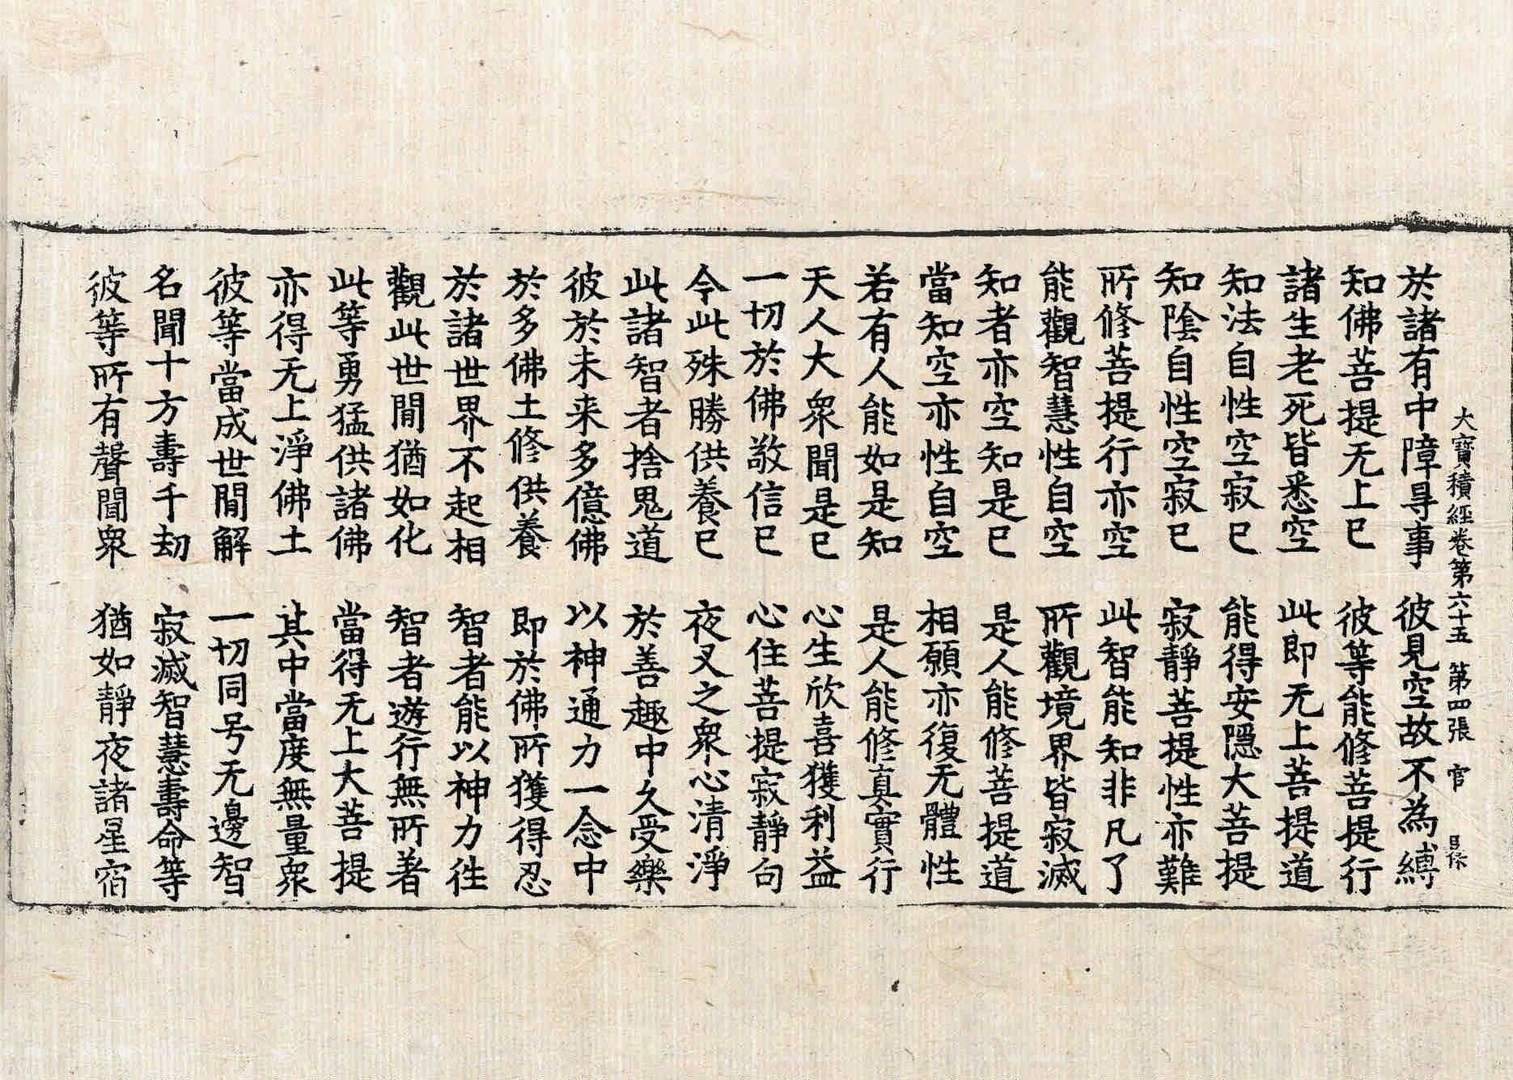 大寶積經卷第六十五　第四張　官
於諸有中障㝵事　彼見空故不為縛
知佛菩提无上已　彼等能修菩提行
諸生老死皆悉空　此即无上菩提道
知法自性空寂已　能得安隱大菩提
知陰自性空寂已　寂靜菩提性亦難
所修菩提行亦空　此智能知非凡了
能觀智慧性自空　所觀境界皆寂滅
知者亦空知是已　是人能修菩提道
當知空亦性自空　相願亦復无體性
若有人能如是知　是人能修真實行
天人大衆聞是已　心生欣喜獲利益
一切於佛敬信已　心住菩提寂靜句
今此殊勝供養已　夜叉之衆心清淨
此諸智者捨鬼道　於善趣中久受樂
彼於未来多億佛　以神通力一念中
於多佛土修供養　即於佛所獲得忍
於諸世界不起相　智者能以神力往
觀此世間猶如化　智者遊行無所著
此等勇猛供諸佛　當得无上大菩提
亦得无上淨佛土　其中當度無量衆
彼等當成世間解　一切同号无邊智
名聞十方壽千劫　寂滅智慧壽命等
彼等所有聲聞衆　猶如靜夜諸星宿